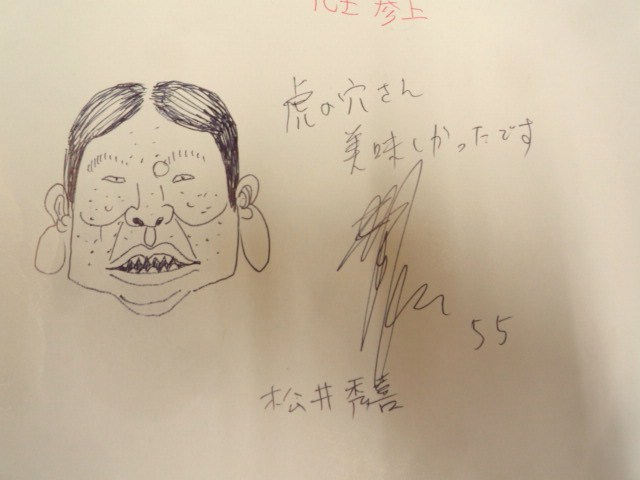 参上
虎の穴さん
美味しかったです
55
松井秀喜